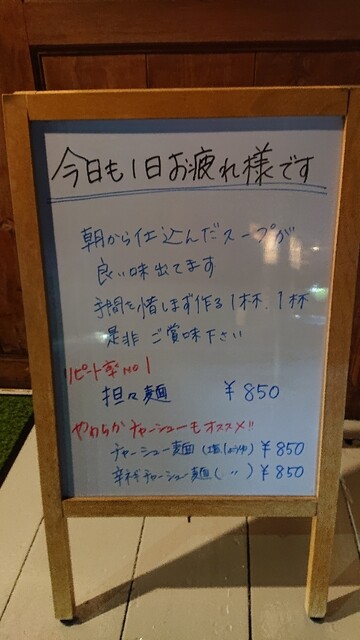 今日も1日お疲れ様です
朝から仕込んだスープが
良い味出てます
手間を惜しまず作る1杯、1杯
是非 ご賞味下さい
リピート率NO1
担々麺 ¥850
やわらかチャーシューもオススメ!!
チャーシュー麺(塩、しょうゆ)¥850
辛ネギチャーシュー麺(〃)¥850